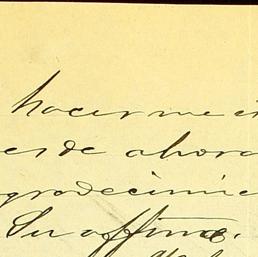 hacerme e
esde ahora
gradecimie
Su affmo.